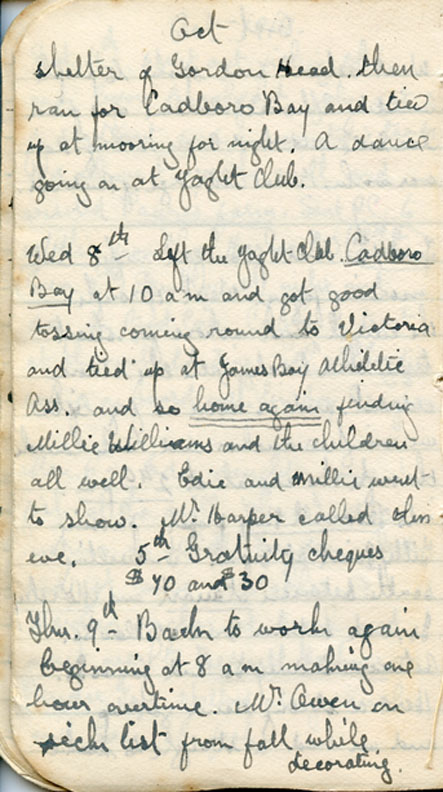 Oct
shelter of Gordon Head. then
ran for Cadboro Bay and tied
up at mooring for night. A dance
going on at Yaght Club.
Wed 8th Left the Yaght Club. Cadboro
Bay at 10 am and got good
tossing coming round to Victoria
and tied up at James Bay Athletic
Ass. and so home again finding
Millie Williams and the children
all well. Edie and Millie went
to show. Mr. Harper called this
eve. 5th Gratuity cheques
$70 and $30
Thur. 9th Back to work again
beginning at 8 am making one
hour overtime. Mr. Owen on
sick list from fall while
decorating.